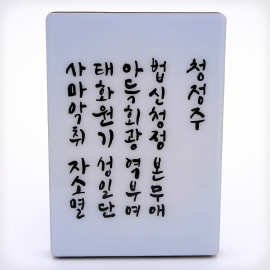 청정주
법신청정 본무애
아득회광 역부여
태화원기 성일단
사마악취 자소멸